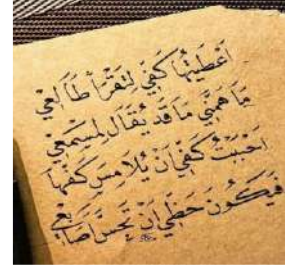 أَعْطَيْتُهَا كَفِّي لِتَقْرَأَ طَالِعِي
مَا هَمَّنِي مَا قَدْ يُقَالُ لِمَسْمَعِي
أَحْبَبْتُ كَفِّي أَنْ يُلَامِسَ كَفَّهَا
فَيَكُونَ حَظِّي أَنْ تَحُسَّ أَصَابِعِي